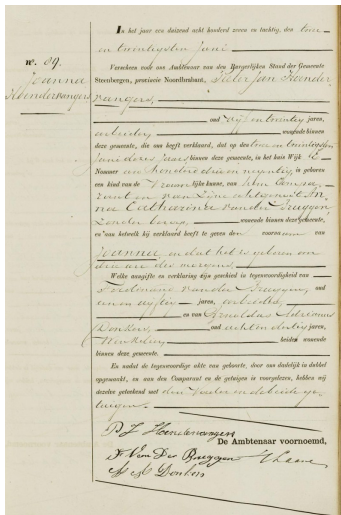 In het jaar een duizend acht honderd zeven en tachtig, den twee
en twintigsten Juni
Verscheen voor ons Ambtenaar van den Burgerlijken Stand der Gemeente
No. 69.
Joanna
Hoendervangers
Steenbergen, provincie Noordbrabant, Pieter Jan Hoender
vangers,
oud vijf en twintig jaren,
arbeider, wonende binnen
deze gemeente, die ons heeft verklaard, dat op den twee en twintigsten
Juni dezes jaars binnen deze gemeente, in het huis Wijk E
Nommer een honderd drie en negentig, is geboren
een kind van de Vrouwelijke kunne, van hem Compa-
rant en van zijne echtgenoote An
na Catharina van der Bruggen,
zonder beroep, wonende binnen deze gemeente,
en van hetwelk hij verklaard heeft te geven den voornaam van
Joanna en dat het is geboren om
drie ure des morgens.
Welke aangifte en verklaring zijn geschied in tegenwoordigheid van
Ferdinand van der Bruggen, oud
een en zestig jaren, arbeider,
en van Arnoldus Adrianus
Donkers, oud acht en dertig jaren,
Winkelier, beiden wonende
binnen deze gemeente.
En omdat de tegenwoordige akte van geboorte, door ons dadelijk in dubbel
opgemaakt, en aan den Comparant en de getuigen is voorgelezen, hebben wij
dezelve geteekend met den Vader en de beide ge-
tuigen.
P J Hoendervangers
De Ambtenaar voornoemd,
F. Van Der Bruggen
A A Donkers